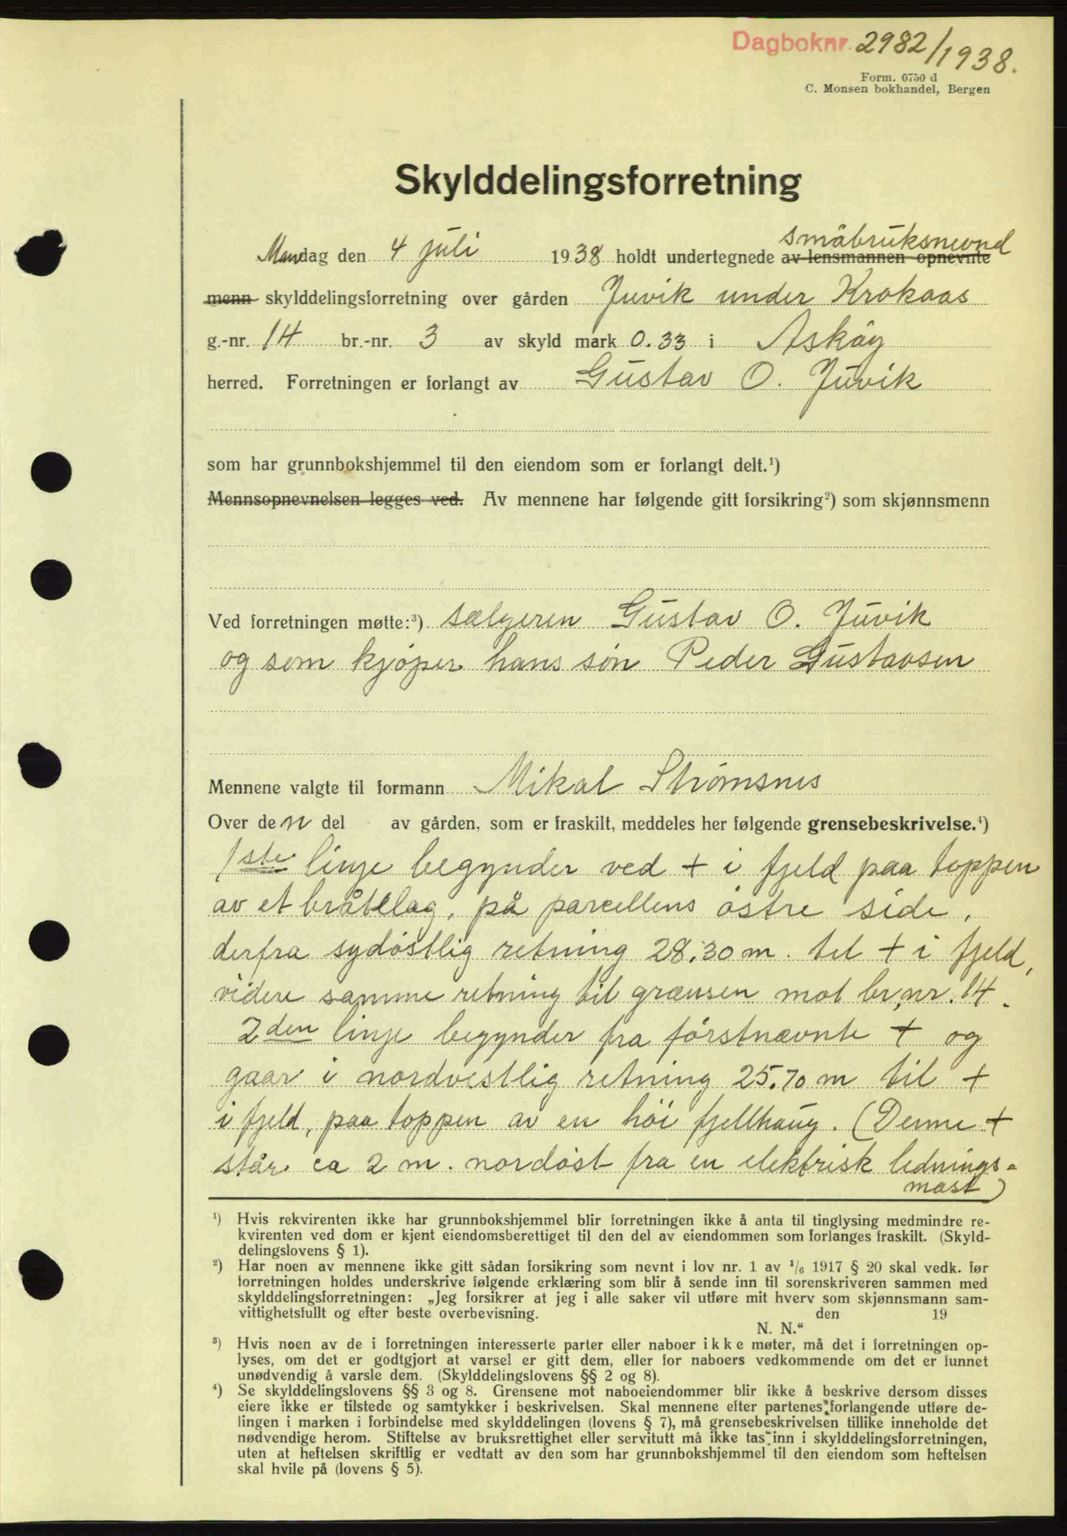 Dagboknr. 2982/1938.
Form. 0750 d
C. Monsen bokhandel, Bergen
Skylddelingsforretning
Mandag den 4 juli 1938 holdt undertegnede småbruksnevnd av lensmannen opnevnte
menn skylddelingsforretning over gården Juvik under Krokaas
g.-nr. 14 br.-nr. 3 av skyld mark 0.33 i Askøy
herred. Forretningen er forlangt av Gustav O. Juvik
som har grunnbokshjemmel til den eiendom som er forlangt delt.¹)
Mennsopnevnelsen legges ved. Av mennene har følgende gitt forsikring²) som skjønnsmenn
Ved forretningen møtte:³) sælgeren Gustav O. Juvik
og som kjøper hans søn Peder Gustavsen
Mennene valgte til formann Mikal Strømsnes
Over den del av gården, som er fraskilt, meddeles her følgende grensebeskrivelse.⁴)
1ste linje begynder ved + i fjeld paa toppen
av et bråtelag, på parcellens østre side,
derfra sydøstlig retning 28.30 m. til + i fjeld,
videre samme retning til grænsen mot br.nr. 14.
2den linje begynder fra førstnævnte + og
gaar i nordvestlig retning 25.70 m til +
i fjeld, paa toppen av en høi fjellhaug. (Denne +
står ca 2 m. nordøst fra en elektrisk lednings-
mast)
¹) Hvis rekvirenten ikke har grunnbokshjemmel blir forretningen ikke å anta til tinglysing medmindre re-
kvirenten ved dom er kjent eiendomsberettiget til den del av eiendommen som forlanges fraskilt. (Skyld-
delingslovens § 1).
²) Har noen av mennene ikke gitt sådan forsikring som nevnt i lov nr. 1 av 1/6 1917 § 20 skal vedk. før
forretningen holdes underskrive følgende erklæring som blir å sende inn til sorenskriveren sammen med
skylddelingsforretningen: „Jeg forsikrer at jeg i alle saker vil utføre mit hverv som skjønnsmann sam-
vittighetsfullt og efter beste overbevisning. den 19
N. N.“
³) Hvis noen av de i forretningen interesserte parter eller naboer ikke møter, må det i forretningen op-
lyses, om det er godtgjort at varsel er gitt dem, eller for naboers vedkommende om det er funnet
unødvendig å varsle dem. (Skylddelingslovens §§ 2 og 8).
⁴) Se skylddelingslovens §§ 3 og 8. Grensene mot naboeiendommer blir ikke å beskrive dersom disses
eiere ikke er tilstede og samtykker i beskrivelsen. Skal mennene efter partenes forlangende utføre de-
lingen i marken i forbindelse med skylddelingen (lovens § 7), må grensebeskrivelsen tillike inneholde det
nødvendige herom. Stiftelse av bruksrettighet eller servitutt må ikke tas inn i skylddelingsforretningen,
uten at heftelsen skriftlig er vedtatt av den som har grunnbokshjemmel til den eiendom som heftelsen
skal hvile på (lovens § 5).